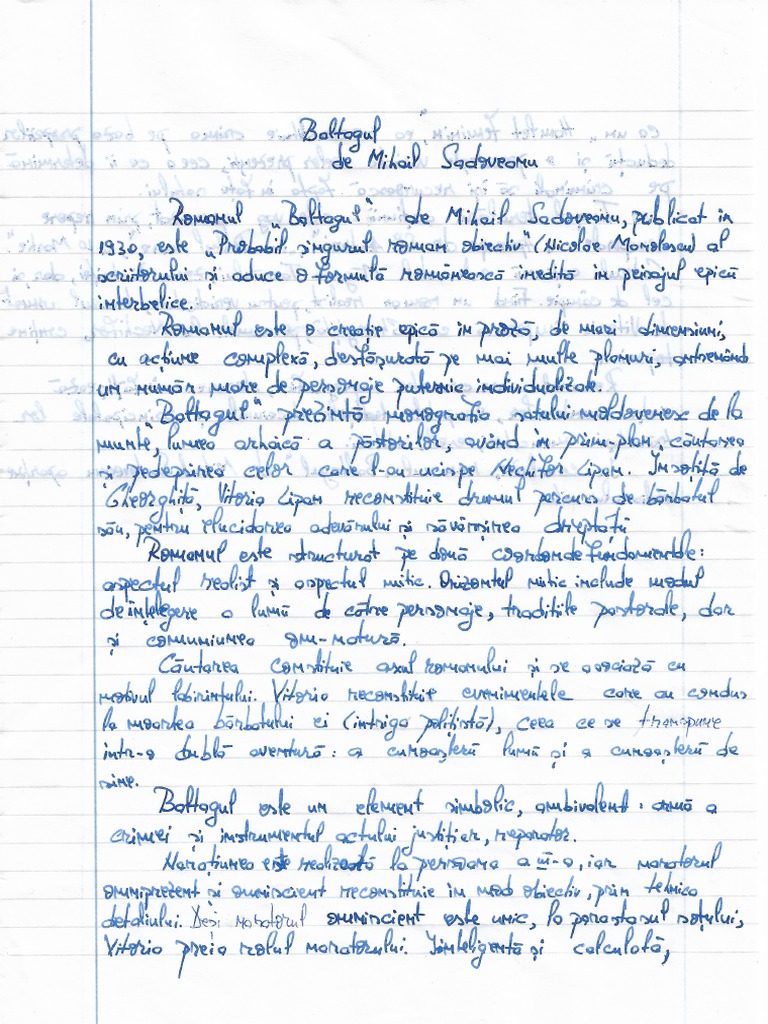 Baltagul
de Mihail Sadoveanu
Romanul "Baltagul" de Mihail Sadoveanu, publicat în
1930, este „Probabil singurul roman obiectiv" (Nicolae Manolescu) al
scriitorului și aduce o formulă românească inedită în peisajul epicii
interbelice.
Romanul este o creație epică în proză, de mari dimensiuni,
cu acțiune complexă, desfășurată pe mai multe planuri, antrenând
un număr mare de personaje puternic individualizate.
"Baltagul" prezintă monografia satului moldovenesc de la
munte, lumea arhaică a păstorilor, având în prim-plan căutarea
și pedepsirea celor care l-au ucis pe Nechifor Lipan. Însoțită de
Gheorghiță, Vitoria Lipan reconstituie drumul parcurs de bărbatul
său, pentru elucidarea adevărului și săvârșirea dreptății
Romanul este structurat pe două coordonde fundamentale:
aspectul realist și aspectul mitic. Orizontul mitic include modul
de înțelegere a lumii de către personaje, tradițiile pastorale, dar
și comuniunea om-natură.
Căutarea constituie axul romanului și se asociază cu
motivul labirintului. Vitoria reconstituie evenimentele care au condus
la moartea bărbatului ei (intriga polițistă), ceea ce se transpune
într-o dublă aventură: a cunoașterii lumii și a cunoașterii de
sine.
Baltagul este un element simbolic, ambivalent: armă a
crimei și instrumentul actului justițiar, reparator.
Narațiunea este realizată la persoana a III-a, iar naratorul
omniprezent și omniscient reconstituie în mod obiectiv, prin tehnica
detaliului. Deși naratorul omniscient este unic, la parastasul soțului,
Vitoria preia rolul naratorului. Inteligentă și calculată,